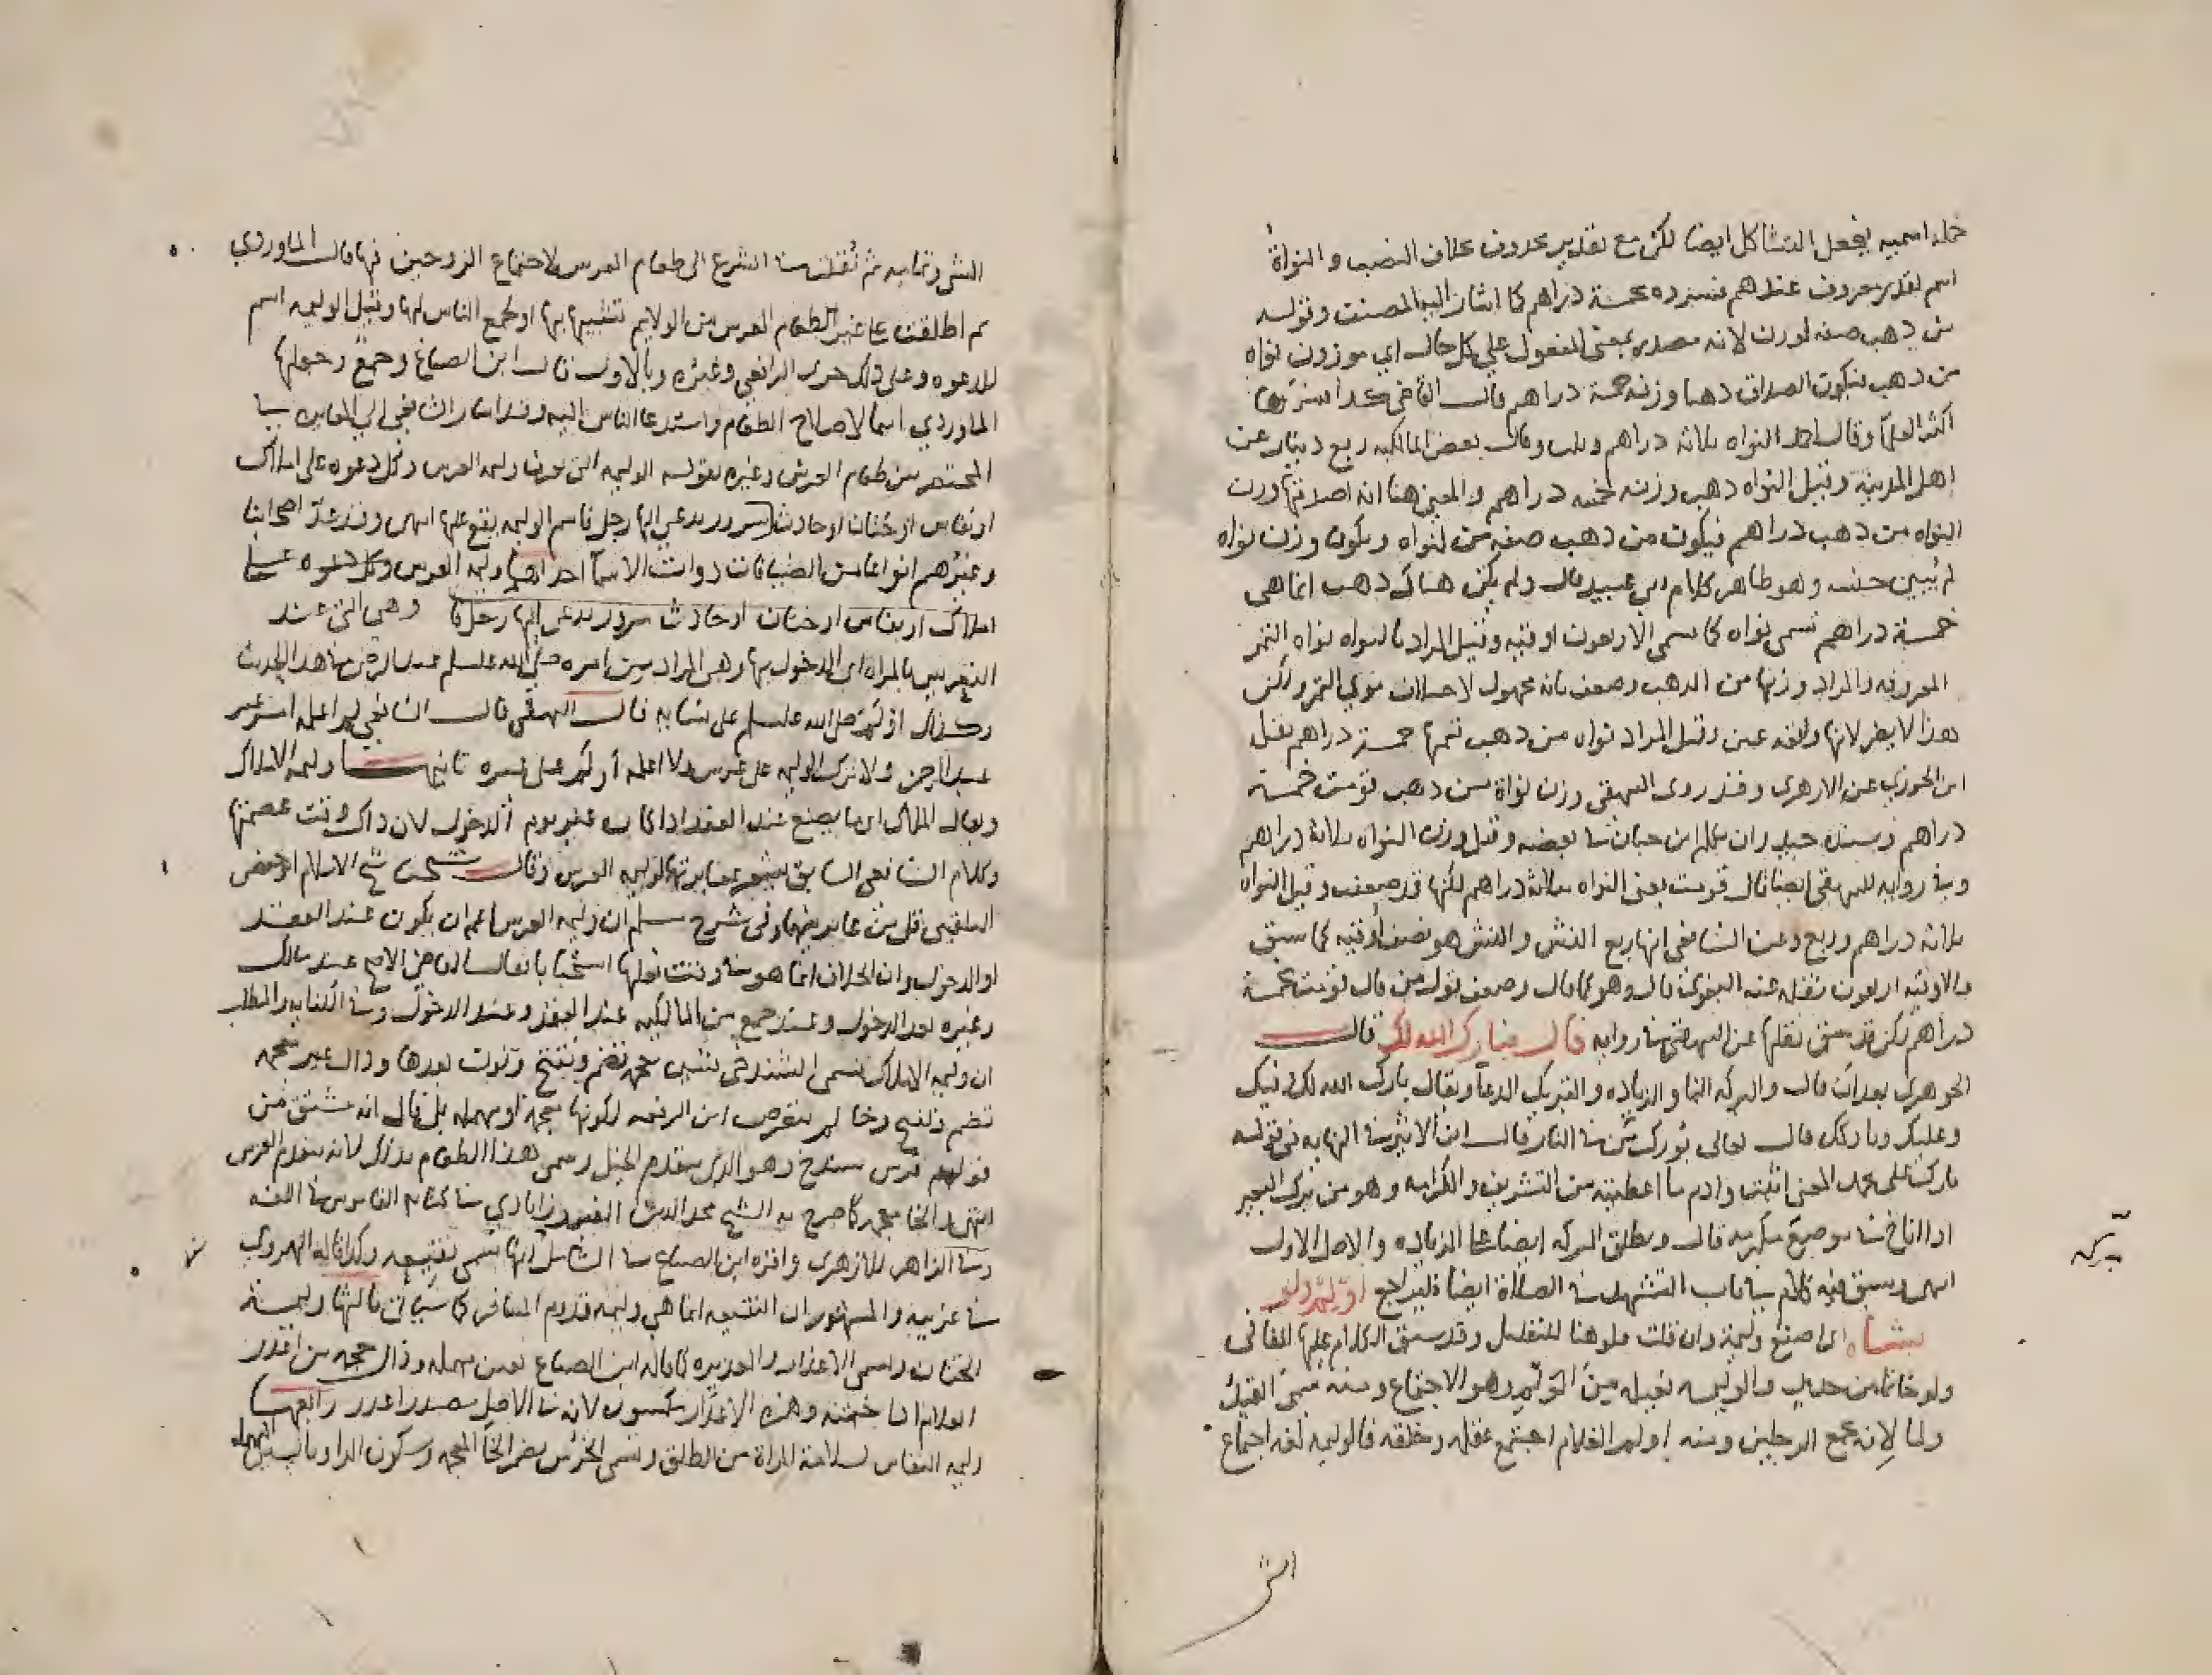 جملة اسميه يفعل التشاكل ايضا لكن مع تقدير محذوف بخلاف النصب والنواة
اسم لقدر معروف عندهم فسروه بخمسة دراهم كما اشار اليه المصنف وقوله
من ذهب صفه لوزن لانه مصدر بمعنى المفعول علي كل حال اي موزون نواه
من ذهب فيكون الصداق ذهبا وزنه خمسة دراهم قال القاضي كذا فسرها
اكثر العلما وقال احمد النواه ثلاثة دراهم وثلث وقال بعض المالكيه ربع دينار عن
اهل المدينة وقيل النواه ذهب وزنه خمسه دراهم والمعنى هنا انه اصدقها وزن
النواه من ذهب دراهم فيكون من ذهب صفه من لنواه ويكون وزن نواه
لم يبين جنسه وهو ظاهر كلام ابي عبيد قال ولم يكن هناك ذهب انما هي
خمسة دراهم تسمى نواه كما تسمى الاربعون اوقيه وقيل المراد بالنواه نواه التمر
المعروفه والمراد وزنها من الذهب وضعف بانه مجهول لاختلاف نوى التمر ولكن
هذا لا يضر لانها واقعه عين وقيل المراد نواه من ذهب قيمتها خمسة دراهم نقله
ابن الجوزي عن الازهري وقد روى البيهقي وزن نواة من ذهب قومت خمسة
دراهم وسنده جيد وان تكلم ابن حبان في بعضه وقيل وزن النواه ثلاثة دراهم
وفي روايه للبيهقي ايضا قال قومت يعنى النواه بثلاثة دراهم لكنها قد ضعفت وقيل النواه
ثلاثه دراهم وربع وعن الشافعي انها ربع النش والنش هو نصف أوقيه كما سبق
والاوقيه اربعون نقله عنه البغوى قال وهو كما قال وضعف قول من قال قومت بخمسة
دراهم لكن قد سبق نقلها عن البيهقي في روايه قال فبارك الله لك قال
الجوهرى بعد ان قال والبركه النما والزياده والتبريك الدعا ويقال بارك الله لك وفيك
وعليك وباركك قال تعالى بورك من في النار قال ابن الاثير في النهايه في قوله
بارك على محمد المعنى اثبت وادم ما اعطيته من التشريف والكرامه وهو من برك البعير
اذا اناخ في موضع فلزمه قال وتطلق البركه ايضا على الزياده والاصل الاول
انتهى وسبق فيه كلام في باب التشهد في الصلاة ايضا فليراجع اولم ولو
بشاه اى اصنع وليمة وان قلت فلو هنا للتقليل وقد سبق الكلام عليها كما في
ولو خاتما من حديد والوليمه فعيله من الولم وهو الاجتماع ومنه سمى القيد
ولما لانه يجمع الرجلين ومنه اولم الغلام اجتمع عقله وخلقه فالوليمه لغه اجتماع
الش
بركه
الشي وتمامه ثم نقلت في الشرع الى طعام العرس لاجتماع الزوجين فيها قال الماوردي
ثم اطلقت على غير طعام العرس من الولايم تشبيها بها او لجمع الناس لها وقيل الوليمه اسم
للدعوه وعلى ذلك جرى الرافعي وغيره وبالاول قال ابن الصباغ وجمع وجعلها
الماوردي اسما لاصلاح الطعام واستدعا الناس اليه وقد اشار الشافعي الى المغايره في
المختصر بين طعام العرس وغيره بقوله الوليمه التي تعرف وليمه العرس وكل دعوه على املاك
او نفاس او ختان او حادث سرور يدعى اليها رجل فاسم الوليمه يقع عليها انتهى وقد عد اصحابنا
وغيرهم انواعا من الضيافات ذوات الاسما احداها وليمه العرس وكل دعوه على
املاك او نفاس او ختان او حادث سرور يدعى اليها رجل فا وهي التي عند
التعريس بالمراه اى الدخول بها وهى المراد من امره صلى الله عليه وسلم عبد الرحمن في هذا الحديث
وكذلك اولم صلى الله عليه وسلم على نسايه قال البيهقى قال الشافعي لم اعلمه امر غير
عبد الرحمن ولا ترك الوليمه على عرس ولا اعلمه أولم على غيره ثانيها وليمه الاملاك
ويقال الملاك اى ما يصنع عند العقد اذا كان في غير يوم الدخول لان ذاك وقت عصمتها
وكلام الشافعي السابق يشعر بمغايرتها لوليمه العرس وقال شيخنا شيخ الاسلام ابو حفص
البلقيني قل من غاير بينهما وفى شرح مسلم ان وليمه العرس اعم ان يكون عند العقد
او الدخول وان الخلاف انما هو في وقت فعلها استحبابا فقال القاضي الاصح عند مالك
وغيره بعد الدخول وعند جمع من المالكيه عند العقد وعند الدخول وفي الكفايه والمطلب
ان وليمه الاملاك تسمى الشندخى بشين معجمه تضم وتفتح ونون بعدها ودال غير معجمه
تضم وتفتح وخا لم يتعرض ابن الرفعه لكونها معجمه او مهمله بل قال انه مشتق من
قولهم فرس شندخ وهو الذى يتقدم الخيل وسمى هذا الطعام بذلك لانه يتقدم العرس
انتهى والخا معجمه كما صرح به الشيخ مجد الدين الفيروزابادي في كتابه القاموس في اللغه
وفي الزاهر للازهرى وافره ابن الصباغ في الشامل انها تسمى نقيعه وكذا قاله الهروى
في غريبه والمشهور ان النقيعه انما هي وليمه قدوم المسافر كما سياتى ثالثها وليمة
الختان وتسمى الاعذار والعذيره كما قاله ابن الصباغ بعين مهمله وذال معجمه من اعذر
الغلام اذا ختنه وهذه الاعذار مكسور لانه في الاصل مصدر اعذر رابعها
وليمه النفاس لسلامة المراة من الطلق وتسمى الخرس بضم الخا المعجمه وسكون الرا وبالسين المهمله